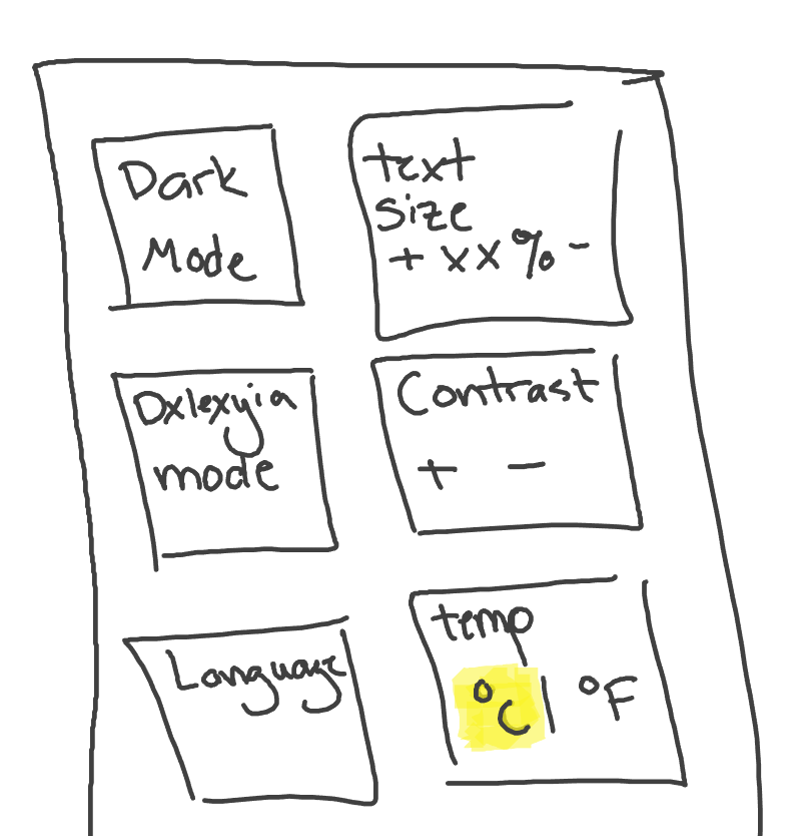 Dark
Mode
text
size
+ xx % -
Dxlexyia
mode
Contrast
+ -
Language
temp
°C | °F